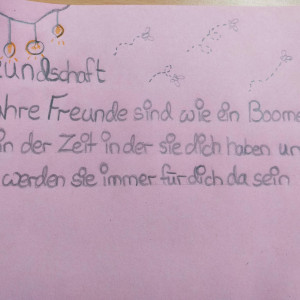 undschaft
ahre Freunde sind wie ein Boome
in der Zeit in der sie dich haben un
werden sie immer für dich da sein